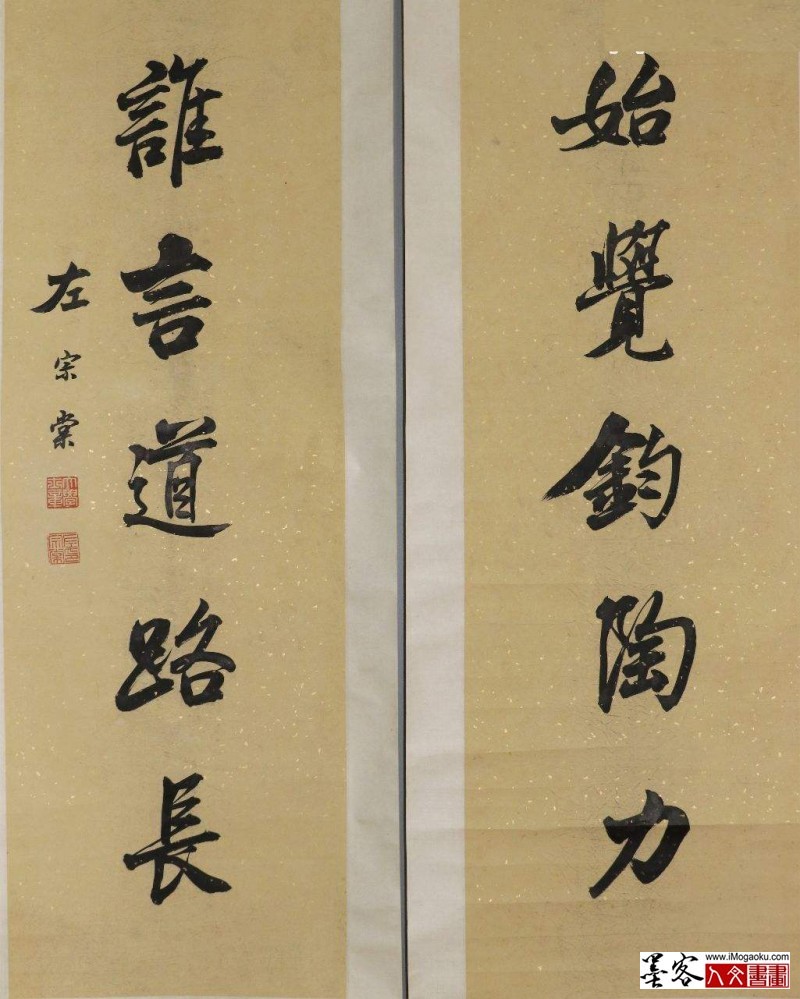 始覺鈞陶力
誰言道路長
左宗棠
墨客
www.iMogaoku.com
人文書畫